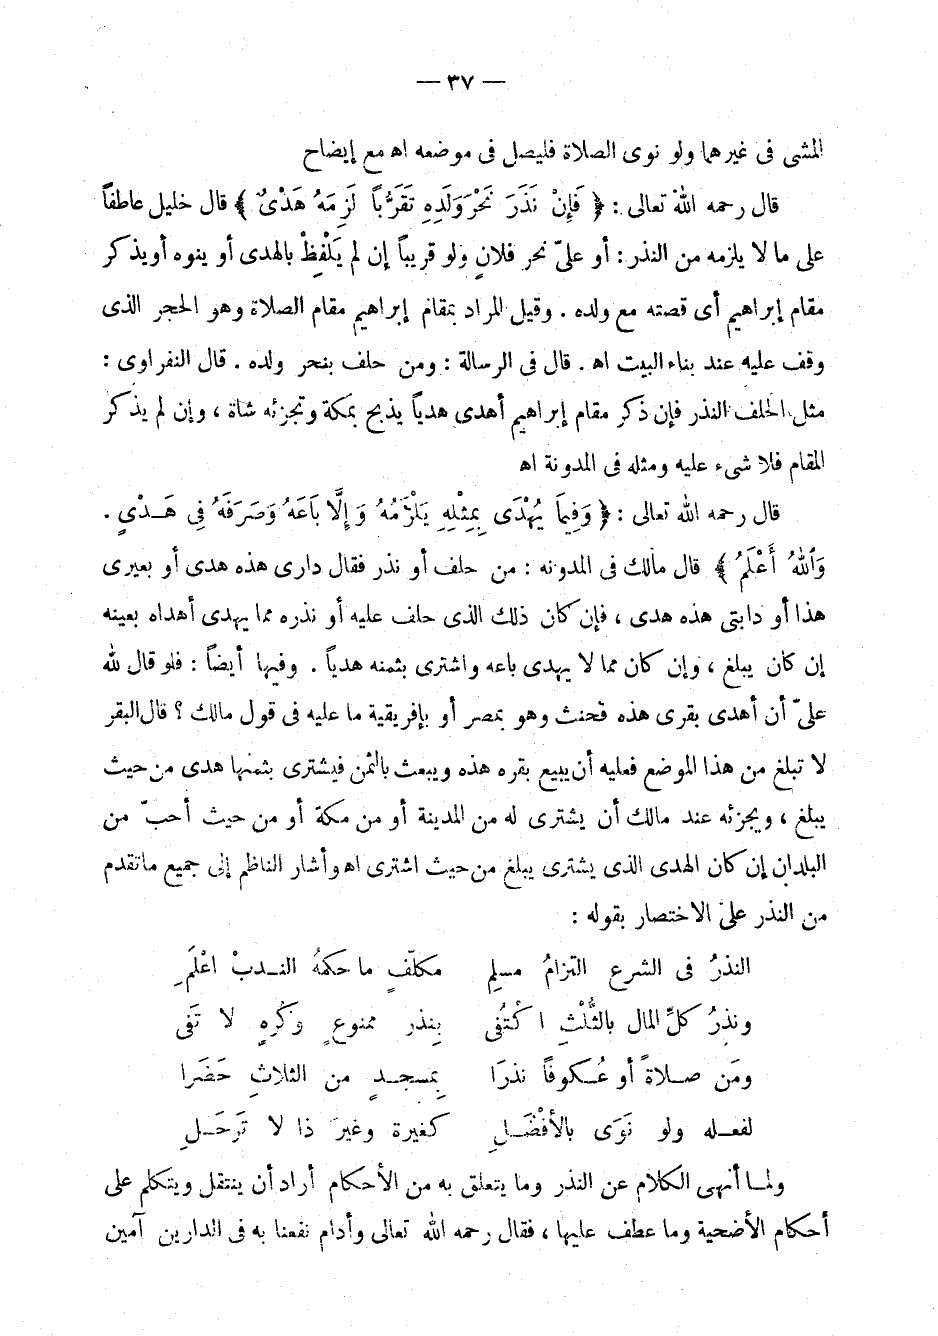 — ٣٧ —
المشى فى غيرهما ولو نوى الصلاة فليصل فى موضعه اه مع إيضاح
قال رحمه الله تعالى : ﴿ فَإِنْ نَذَرَ نَحْرَ وَلَدِهِ تَقَرُّباً لَزِمَهُ هَدْىٌ ﴾ قال خليل عاطفاً
على ما لا يلزمه من النذر : أو علىّ نحر فلانٍ ولو قريباً إن لم يَلْفِظْ بالهدى أو ينوه أو يذكر
مقام إبراهيم أى قصته مع ولده . وقيل المراد بمقام إبراهيم مقام الصلاة وهو الحجر الذى
وقف عليه عند بناء البيت اه . قال فى الرسالة : ومن حلف بنحر ولده . قال النفراوى :
مثل الحلف النذر فإن ذكر مقام إبراهيم أهدى هدياً يذبح بمكة وتجزئه شاة ، وإن لم يذكر
المقام فلا شىء عليه ومثله فى المدونة اه
قال رحمه الله تعالى : ﴿ وَفِيمَا يُهْدَى بِمِثْلِهِ يَلْزَمُهُ وَإِلَّا بَاعَهُ وَصَرَفَهُ فِى هَـدْىٍ .
وَاللهُ أَعْلَمُ ﴾ قال مالك فى المدونه : من حلف أو نذر فقال دارى هذه هدى أو بعيرى
هذا أو دابتى هذه هدى ، فإن كان ذلك الذى حلف عليه أو نذره مما يهدى أهداه بعينه
إن كان يبلغ ، وإن كان مما لا يهدى باعه واشترى بثمنه هدياً . وفيها أيضاً : فلو قال لله
علىّ أن أهدى بقرى هذه فحنث وهو بمصر أو بإفريقية ما عليه فى قول مالك ؟ قال البقر
لا تبلغ من هذا الموضع فعليه أن يبيع بقره هذه ويبعث بالثمن فيشترى بثمنها هدى من حيث
يبلغ ، ويجزئه عند مالك أن يشترى له من المدينة أو من مكة أو من حيث أحبّ من
البلدان إن كان الهدى الذى يشترى يبلغ من حيث اشترى اه وأشار الناظم إلى جميع ما تقدم
من النذر على الاختصار بقوله :
النذرُ فى الشرع التزامُ مسلمِ مكلّفٍ ما حكمهُ النـدبْ اعْلَمِ
ونذرُ كلِّ المال بالثُّلْثِ اكْتُفِى بِنذر ممنوعٍ وَكُرهٍ لا تَفى
ومَن صـلاةً أو عُـكوفاً نذرَا بِمسجـدٍ من الثلاثِ حَضَرا
لفعـله ولو نَوَى بالأفْضَـلِ كغيرة وغيرَ ذا لا تَرحَـلِ
ولمـا أنهى الكلام عن النذر وما يتعلق به من الأحكام أراد أن ينتقل ويتكلم على
أحكام الأضحية وما عطف عليها ، فقال رحمه الله تعالى وأدام نفعنا به فى الدارين آمين